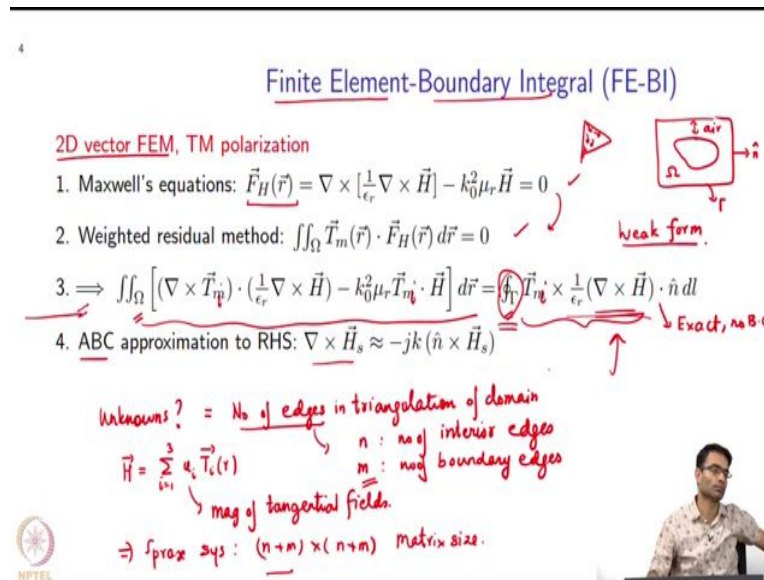 4
Finite Element-Boundary Integral (FE-BI)
2D vector FEM, TM polarization
1. Maxwell's equations: $\vec{F}_H(\vec{r}) = \nabla \times [\frac{1}{\epsilon_r} \nabla \times \vec{H}] - k_0^2 \mu_r \vec{H} = 0$
air
Ω
n̂
Γ
2. Weighted residual method: $\iint_\Omega \vec{T}_m(\vec{r}) \cdot \vec{F}_H(\vec{r}) \, d\vec{r} = 0$
weak form.
3. $\Longrightarrow \iint_\Omega \left[ (\nabla \times \vec{T}_{m}) \cdot (\frac{1}{\epsilon_r} \nabla \times \vec{H}) - k_0^2 \mu_r \vec{T}_{m} \cdot \vec{H} \right] d\vec{r} = \oint_\Gamma \vec{T}_{m} \times \frac{1}{\epsilon_r} (\nabla \times \vec{H}) \cdot \hat{n} \, dl$
Exact, no B.C
4. ABC approximation to RHS: $\nabla \times \vec{H}_s \approx -jk \, (\hat{n} \times \vec{H}_s)$
Unknowns? = No of edges in triangulation of domain
n : no of interior edges
$\vec{H} = \sum_{i=1}^{3} u_i \vec{T}_i(r)$
m : no of boundary edges
mag of tangential fields.
⇒ Sprax sys: (n+m) × (n+m) matrix size.
NPTEL